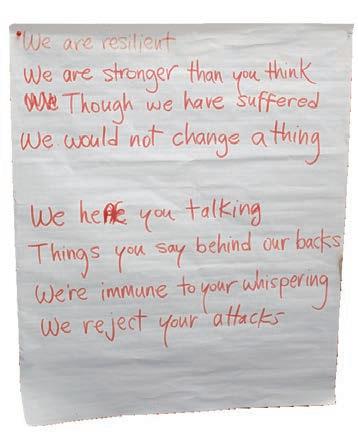 We are resilient
We are stronger than you think
Though we have suffered
We would not change a thing
We hear you talking
Things you say behind our backs
We're immune to your whispering
We reject your attacks